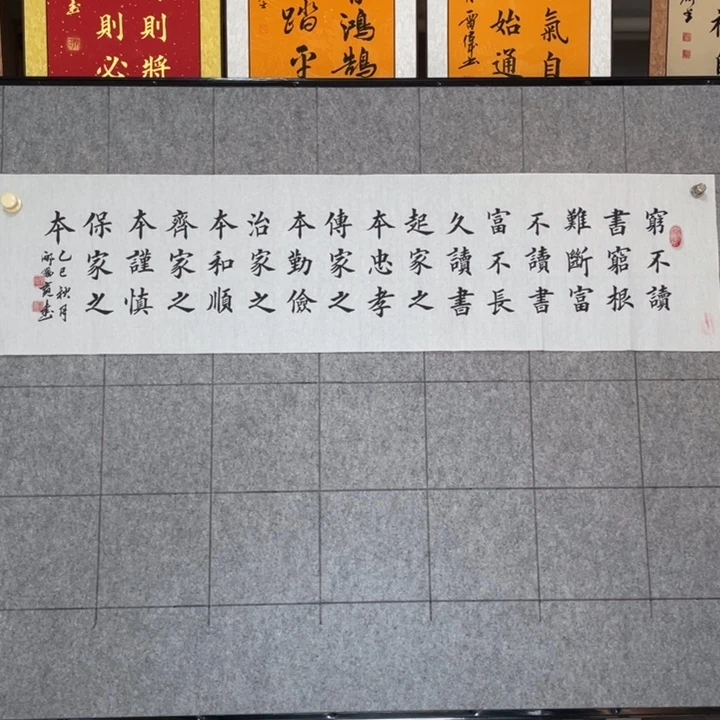 則將
則必
鴻鵠
踏平
氣自
始通
窮不讀
書窮根
難斷富
不讀書
富不長
久讀書
起家之
本忠孝
傳家之
本勤儉
治家之
本和順
齊家之
本謹慎
保家之
本
乙巳秋月